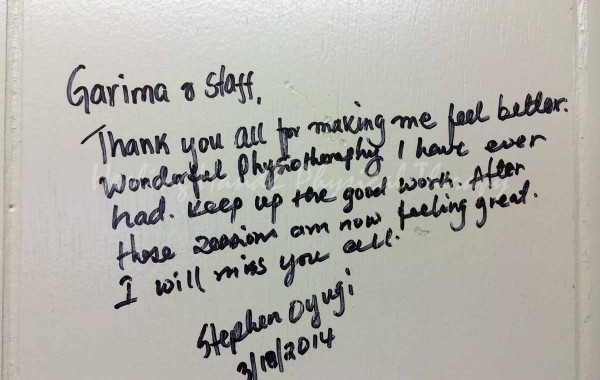 Garima & Staff,
Thank you all for making me feel better.
Wonderful Physiotheraphy I have ever
had. Keep up the good work. After
those sessions am now feeling great.
I will miss you all.
Stephen Oyugi
3/18/2014